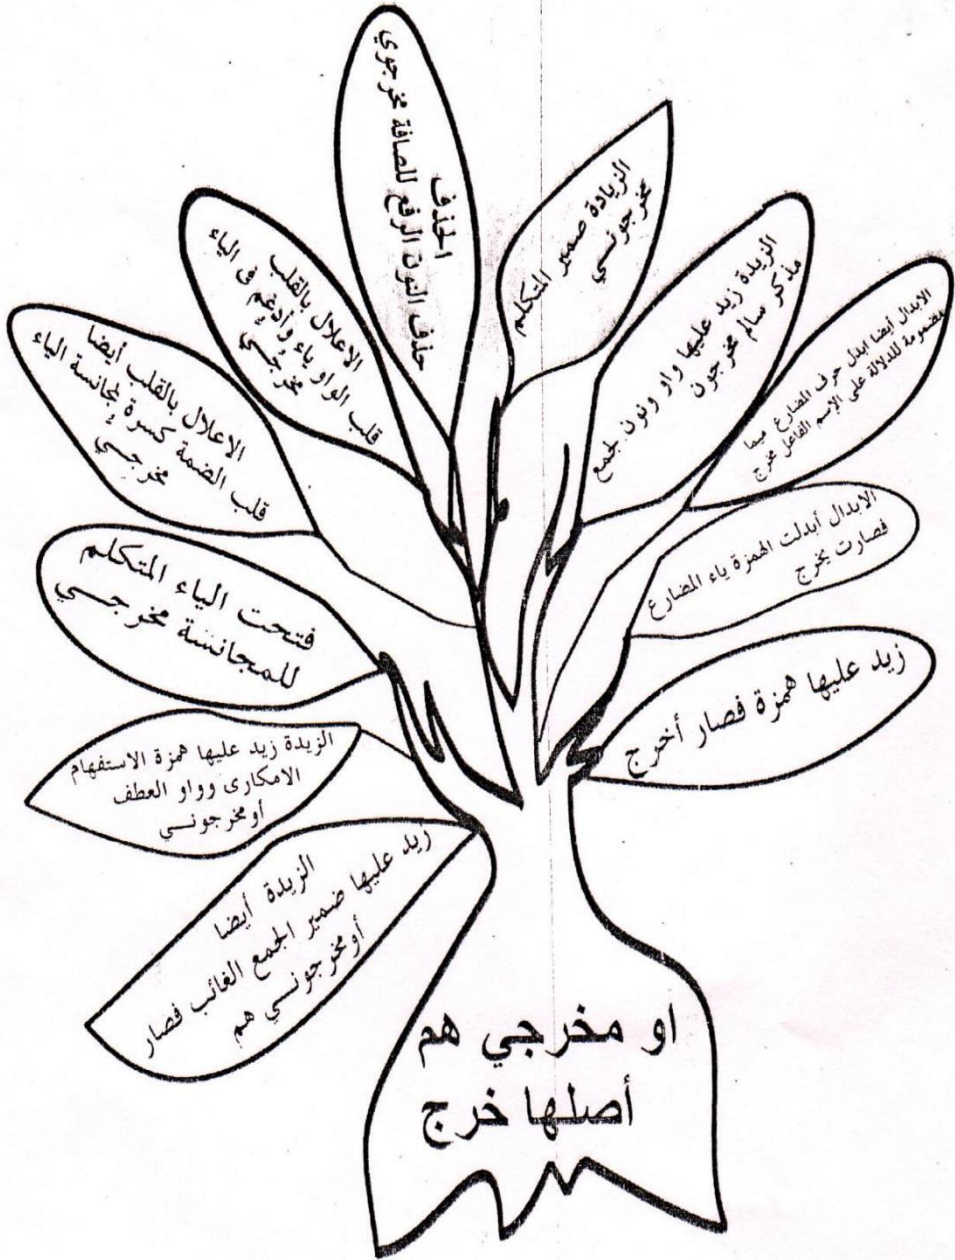 او مخرجي هم
أصلها خرج
زيد عليها همزة فصار أخرج
الابدال أبدلت الهمزة ياء المضارع
فصارت يخرج
الابدال أيضا ابدل حرف المضارع ميما
مضمومة للدلالة على الإسم الفاعل مخرج
الزيدة زيد عليها واو ونون لجمع
مذكر سالم مخرجون
الزيادة صمير المتكلم
مخرجونـــي
الحذف
حذف النون الرفع للصافة مخرجوي
الاعلال بالقلب
قلب الواو ياء وأدغم فى الياء
مخرجُـــي
الاعلال بالقلب أيضا
قلب الضمة كسرة لمجانسة الياء
مخرجِـــي
فتحت الياء المتكلم
للمجانسة مخرجـــي
الزيدة زيد عليها همزة الاستفهام
الامكارى وواو العطف
أومخرجونـــي
الزيدة أيضا
زيد عليها ضمير الجمع الغائب فصار
أومخرجونـــي هم